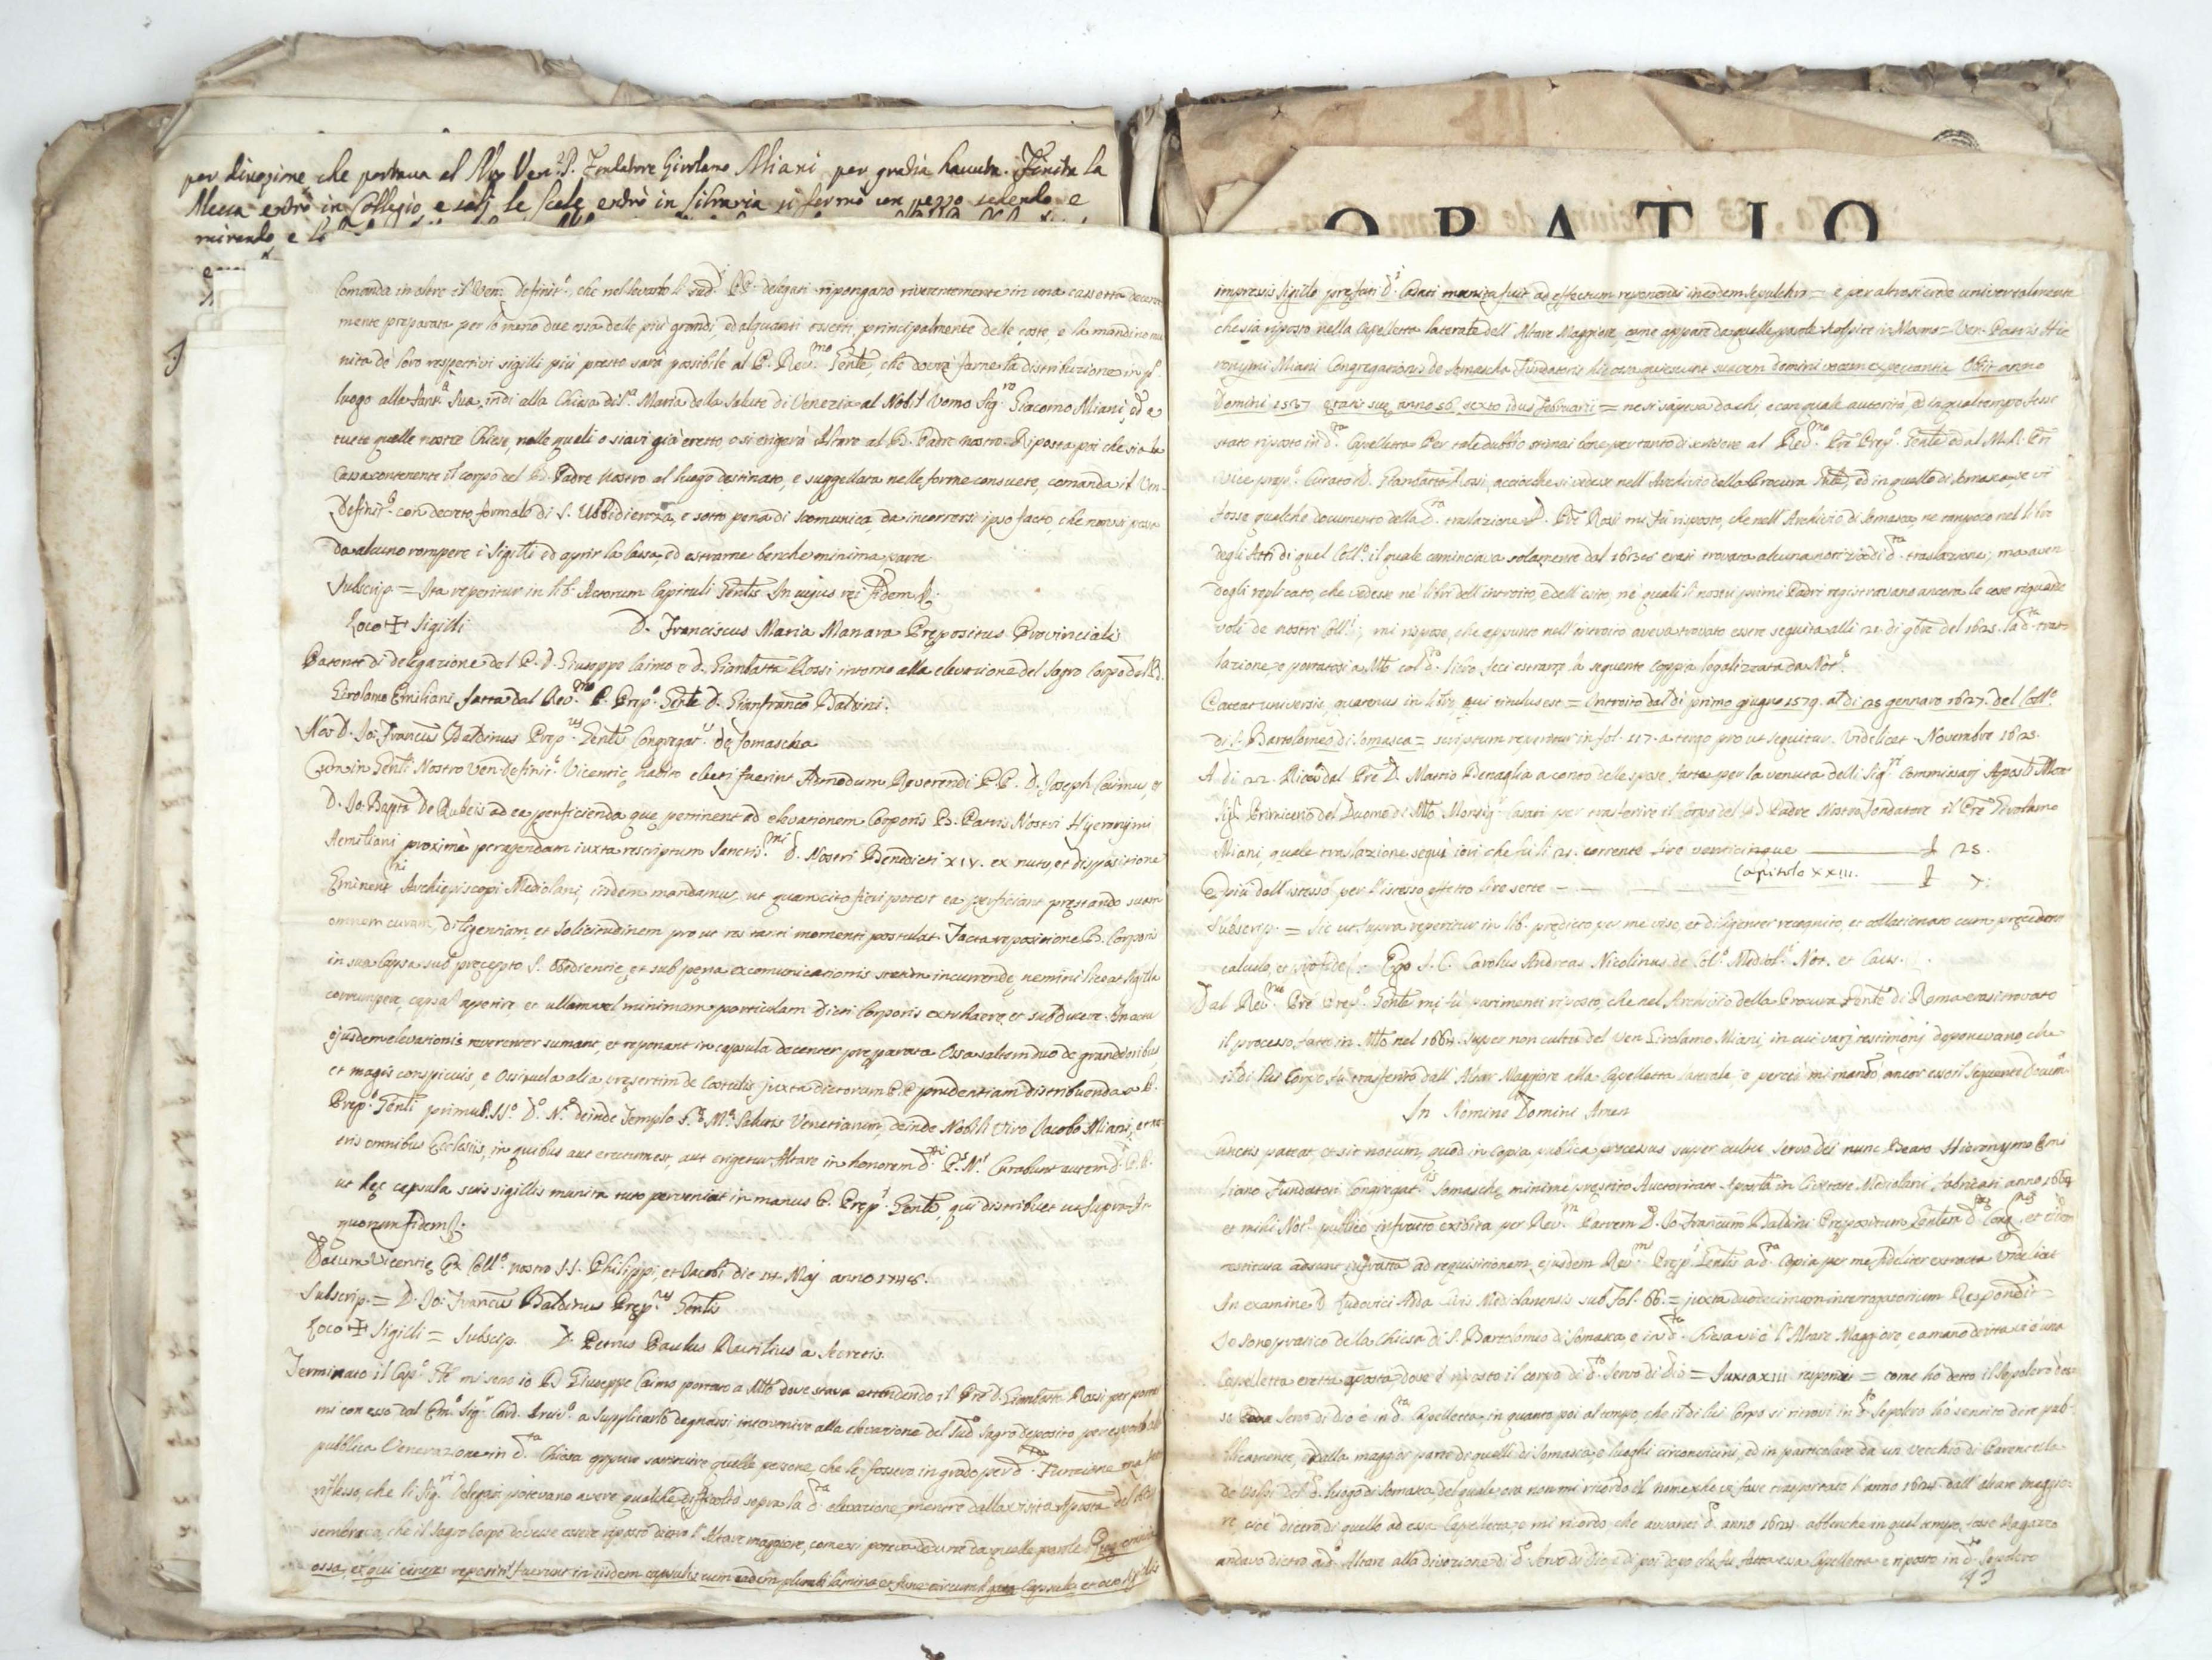 per divozione che portava al Nro Ven. P. Fondatore Girolamo Miani per gratia havuta. Finita la
Messa entrò in Collegio e salì le scale entrò in libraria si fermò un pezzo sedendo e
mirando e
Comanda in oltre il Ven. Definit.º, che nel levarlo li sud.i PP. delegati ripongano riverentemente in una cassetta decente
mente preparata per lo meno due ossa delle più grandi, ed alquanti ossetti, principalmente delle coste, e la mandino mu
nita de loro respettivi sigilli più presto sarà possibile al P. Rev.mo Gen̄le, che dovrà farne la distribuzione in pº
luogo alla Sant.a Sua, indi alla Chiesa di S.a Maria della Salute di Venezia al Nobil Uomo Sig.ro Giacomo Miani, ed a
tutte quelle nostre Chiese, nelle quali o siavi già eretto, o si erigerà Altare al B. Padre nostro. Riposta poi che sia la
Cassa contenente il corpo del B. Padre nostro al luogo destinato, e suggellata nelle forme consuete, comanda il Ven.
Definit.º con decreto formale di S. Ubbidienza, e sotto pena di scomunica da incorrersi ipso facto che non si possa
da alcuno rompere i sigilli ed aprir la Cassa, ed estrarne benche minima parte
Subscrip. = Ita reperitur in lib. Actorum Capituli Gen̄lis In cujus rei fidem &.
Loco ✠ Sigilli D. Franciscus Maria Manara Prepositus Provincialis
Patente di delegazione del P. D. Giuseppe Caimo e D. Gianbatta Rossi intorno alla elevazione del Sagro Corpo del B.
Girolamo Emiliani fatta dal Rev.mo P. Prep.º Gen̄le D. Gianfranc.o Baldini.
Nos D. Jo: Franc̄us Baldinus Prep.us Gen̄lis Congregat.is de Somascha
Cum in Gen̄li Nostro Ven. Definit.º Vicentiȩ habito electi fuerint Admodum Reverendi P.P. D. Joseph Caimus, et
D. Jo: Bapta De Rubeis ad ea perficienda quȩ pertinent ad elevationem Corporis B. Patris Nostri Hyeronymi
Aemiliani proximè peragendam iuxta rescriptum Sanctis.mi D. Nostri Benedicti XIV. ex nutu, et dispositione
Eminent.mi Archiepiscopi Mediolani, iisdem mandamus, ut quam cito fieri potest ea perficiant prȩstando suam
omnem curam, diligentiam, et solicitudinem prout res tanti momenti postulat. Facta repositione B. Corporis
in sua Capsa sub prȩcepto S. Obȩdientiȩ, et sub pȩna excomunicationis statim incurrendȩ nemini liceat sigilla
corrumpere, capsam aperire et ullam vel minimam particulam Dicti Corporis extrahere, et subducere. In actu
ejusdem elevationis reverenter sumant, et reponant in capsula decenter prȩparata Ossa saltem duo de grandioribus
et magis conspicuis, e Ossicula alia presertim de Costulis juxta dictorum P.P. prudentiam distribuenda a P.
Prep.º Gen̄li primum SS.º D.º N.º deinde Templo S.ȩ M.ȩ Salutis Venetiarum, deinde Nobili Viro Jacobo Miani, et no
stris omnibus Ecclesiis, in quibus aut erectum est, aut erigetur Altare in honorem d.ti P.s N.i Curabunt autem d.i P.P.
ut hȩc capsula suis sigillis munita tuto perveniat in manus P. Prep.i Gen̄lis, qui distribuet ut supra. In
quorum fidem &.
Datum Vicentiȩ Ex Coll.º nostro SS. Philippi, et Jacobi die 14 Maj anno 1748.
Subscrip. = D. Jo: Franc̄us Baldinus Prep.us Gen̄lis
Loco ✠ Sigilli = Subscrip. D. Petrus Paulus Rutilius a Secretis.
Terminato il Cap.º Gle mi sono io D. Giuseppe Caimo portato a Mlo dove stava attendendo il Pre D. Gianbatta Rossi per portar
mi con esso dal Em.º Sig.r Card. Arciv.º a supplicarlo degnarsi intervenire alla elevazione del sud.º Sagro deposito per esporlo alla
pubblica Venerazione in d.ta Chiesa oppure sostituire quelle persone, che le fossero in grado per d.ta Funzione, ma
riflesso, che li Sig.ri Delegati potevano avere qualche difficoltà sopra la d.ta elevazione, mentre dalla visita Apostca del
sembrava, che il Sagro Corpo dovesse essere riposto dietro l'Altare maggiore, come si poteva dedurre da quelle parole
ossa, et qui cineres repositi fuerunt in iisdem capsulis cum eadem plumbi lamina et fune circumligata Capsula et octo sigillis
ORATIO
impressis sigillo prefati D. Casati munita fuit ad effectum reponendi in eodem sepulchro = e per altro si crede universalmente
che sia riposto nella Capelletta laterale dell'Altare Maggiore, come appare da quelle parole scolpite in Marmo = Ven. Patris Hie
ronymi Miani Congregationis de Somascha Fundatoris hic ossa quiescunt suavem domini vocem expectantia Obiit anno
Domini 1537 ȩtatis suȩ anno 56 sexto idus februarii = ne si sapeva da chi, e con quale autorità, ed in qual tempo fosse
stato riposto in d.ta Capelletta. Per tale dubbio stimai bene per tanto di scrivere al Rev.mo Pre Prep.º Gen̄le ed al M. R. Pre
Vice prep.º Curato D. Gianbatta Rossi, acciocche si vedesse nell'Archivio della Procura Gen̄le, ed in quello di Somasca, se vi
fosse qualche documento della d.ta traslazione. Il P. Pre Rossi mi fù risposto, che nell'Archivio di Somasca, ne tampoco nel libro
degli Atti di quel Coll.º il quale cominciava solamente dal 1636 erasi trovata alcuna notizia di d.ta traslazione; ma aven
dogli replicato, che vedesse nè libri dell'introito, e dell'esito, nè quali li nostri primi Padri registravano ancora le cose riguarde
voli de nostri Coll.i, mi rispose, che appunto nell'introito aveva trovato essere seguita alli 21. di 9bre del 1625. la d.ta tras
lazione, e portatosi a Mlo col d.to libro, feci estrarre la seguente coppia legalizzata da Not.º
Pateat universis, quatenus in libro, qui titulus est = Introito dal dì primo giugno 1579. al dì 28 gennaro 1627. del Coll.º
di S. Bartolomeo di Somasca = scriptum reperitur in fol. 117. a tergo pro ut sequitur. Videlicet. Novembre 1625.
A dì 22. Ricev.º dal Pre D. Mattio Benaglia a conto delle spese fatte per la venuta delli Sig.ri Commissarj Apostci Mon
Sig.r Primicerio del Duomo di Mlo Monsig.r Casati per trasferire il Corpo del B. Padre Nostro Fondatore il Pre Girolamo
Miani quale traslazione seguì ieri che fù li 21. corrente lire venticinque ——— £ 25.
E più dall'istesso per l'istesso effetto lire sette — — £ 7.
Capitolo XXIII.
Subscrip. = Sic ut supra reperitur in lib. predicto per me viso, et diligenter recognito, et collationato cum precedenti
calculo, et pro fide &. Ego J. C. Carolus Andreas Nicolinus de Col.º Mediol.i Not. et Caus.
Dal Rev.mo Pre Prep.º Gen̄le mi fù parimenti risposto, che nel Archivio della Procura Gen̄le di Roma erasi trovato
il processo fatto in Mlo nel 1664. super non cultu del Ven. Girolamo Miani, in cui varj testimonj deponevano, che
il di lui Corpo fù trasferito dall'Altar Maggiore alla Capelletta laterale, e perciò mi mandò ancor esso il seguente Docum.to
In Nomine Domini Amen
Cunctis pateat, et sit notum, quod in Copia publica processus super cultu Servo Dei nunc Beato Hieronymo Emi
liano Fundatori Congregat.is Somaschȩ minimè prȩstito Auctoritate Apostca in Civitate Mediolani fabricati anno 1664
et mihi Not.º publico infrascto exhibita per Rev.m Patrem D. Jo Franc̄um Baldini Prepositum Gen̄lem d.ȩ Cong.nis, et eidem
restituta adsunt infrascta ad requisitionem ejusdem Rev.mi Prep.i Gen̄lis a d.ta Copia per me fideliter extracta Videlicet
In examine D. Ludovici Adda Civis Mediolanensis sub Fol. 66. = juxta duodecimum interrogatorium Respondit =
Io sono pratico della Chiesa di S. Bartolomeo di Somasca, e in d.ta Chiesa vi è l'Altare Maggiore, e a mano dritta vi è una
Capelletta eretta aposta, dove è riposto il corpo di d.to Servo di Dio = Juxta XIII. respondit = come hò detto il Sepolcro d'es
so Servo di Dio è in d.ta Capelletta, in quanto poi al tempo, che il di lui Corpo si ritrovi in d.to Sepolcro hò sentito dire pub
blicamente, e dalla maggior parte di quelli di Somasca, e luoghi circonvicini, ed in particolare da un vecchio di Parentela
de Volpi del d.º luogo di Somasca, del quale ora non mi ricordo il nome, che vi fosse trasportato l'anno 1624. dall'altare maggio
re, cioè dietro di quello ad essa Capelletta, e mi ricordo che avvanti d.º anno 1624. abbenche in quel tempo fosse Ragazzo
andavo dietro a d.º Altare alla divozione di d.º Servo di Dio, e di poi dopo che fù fatta essa Capelletta e riposto in d.to Sepolcro
93